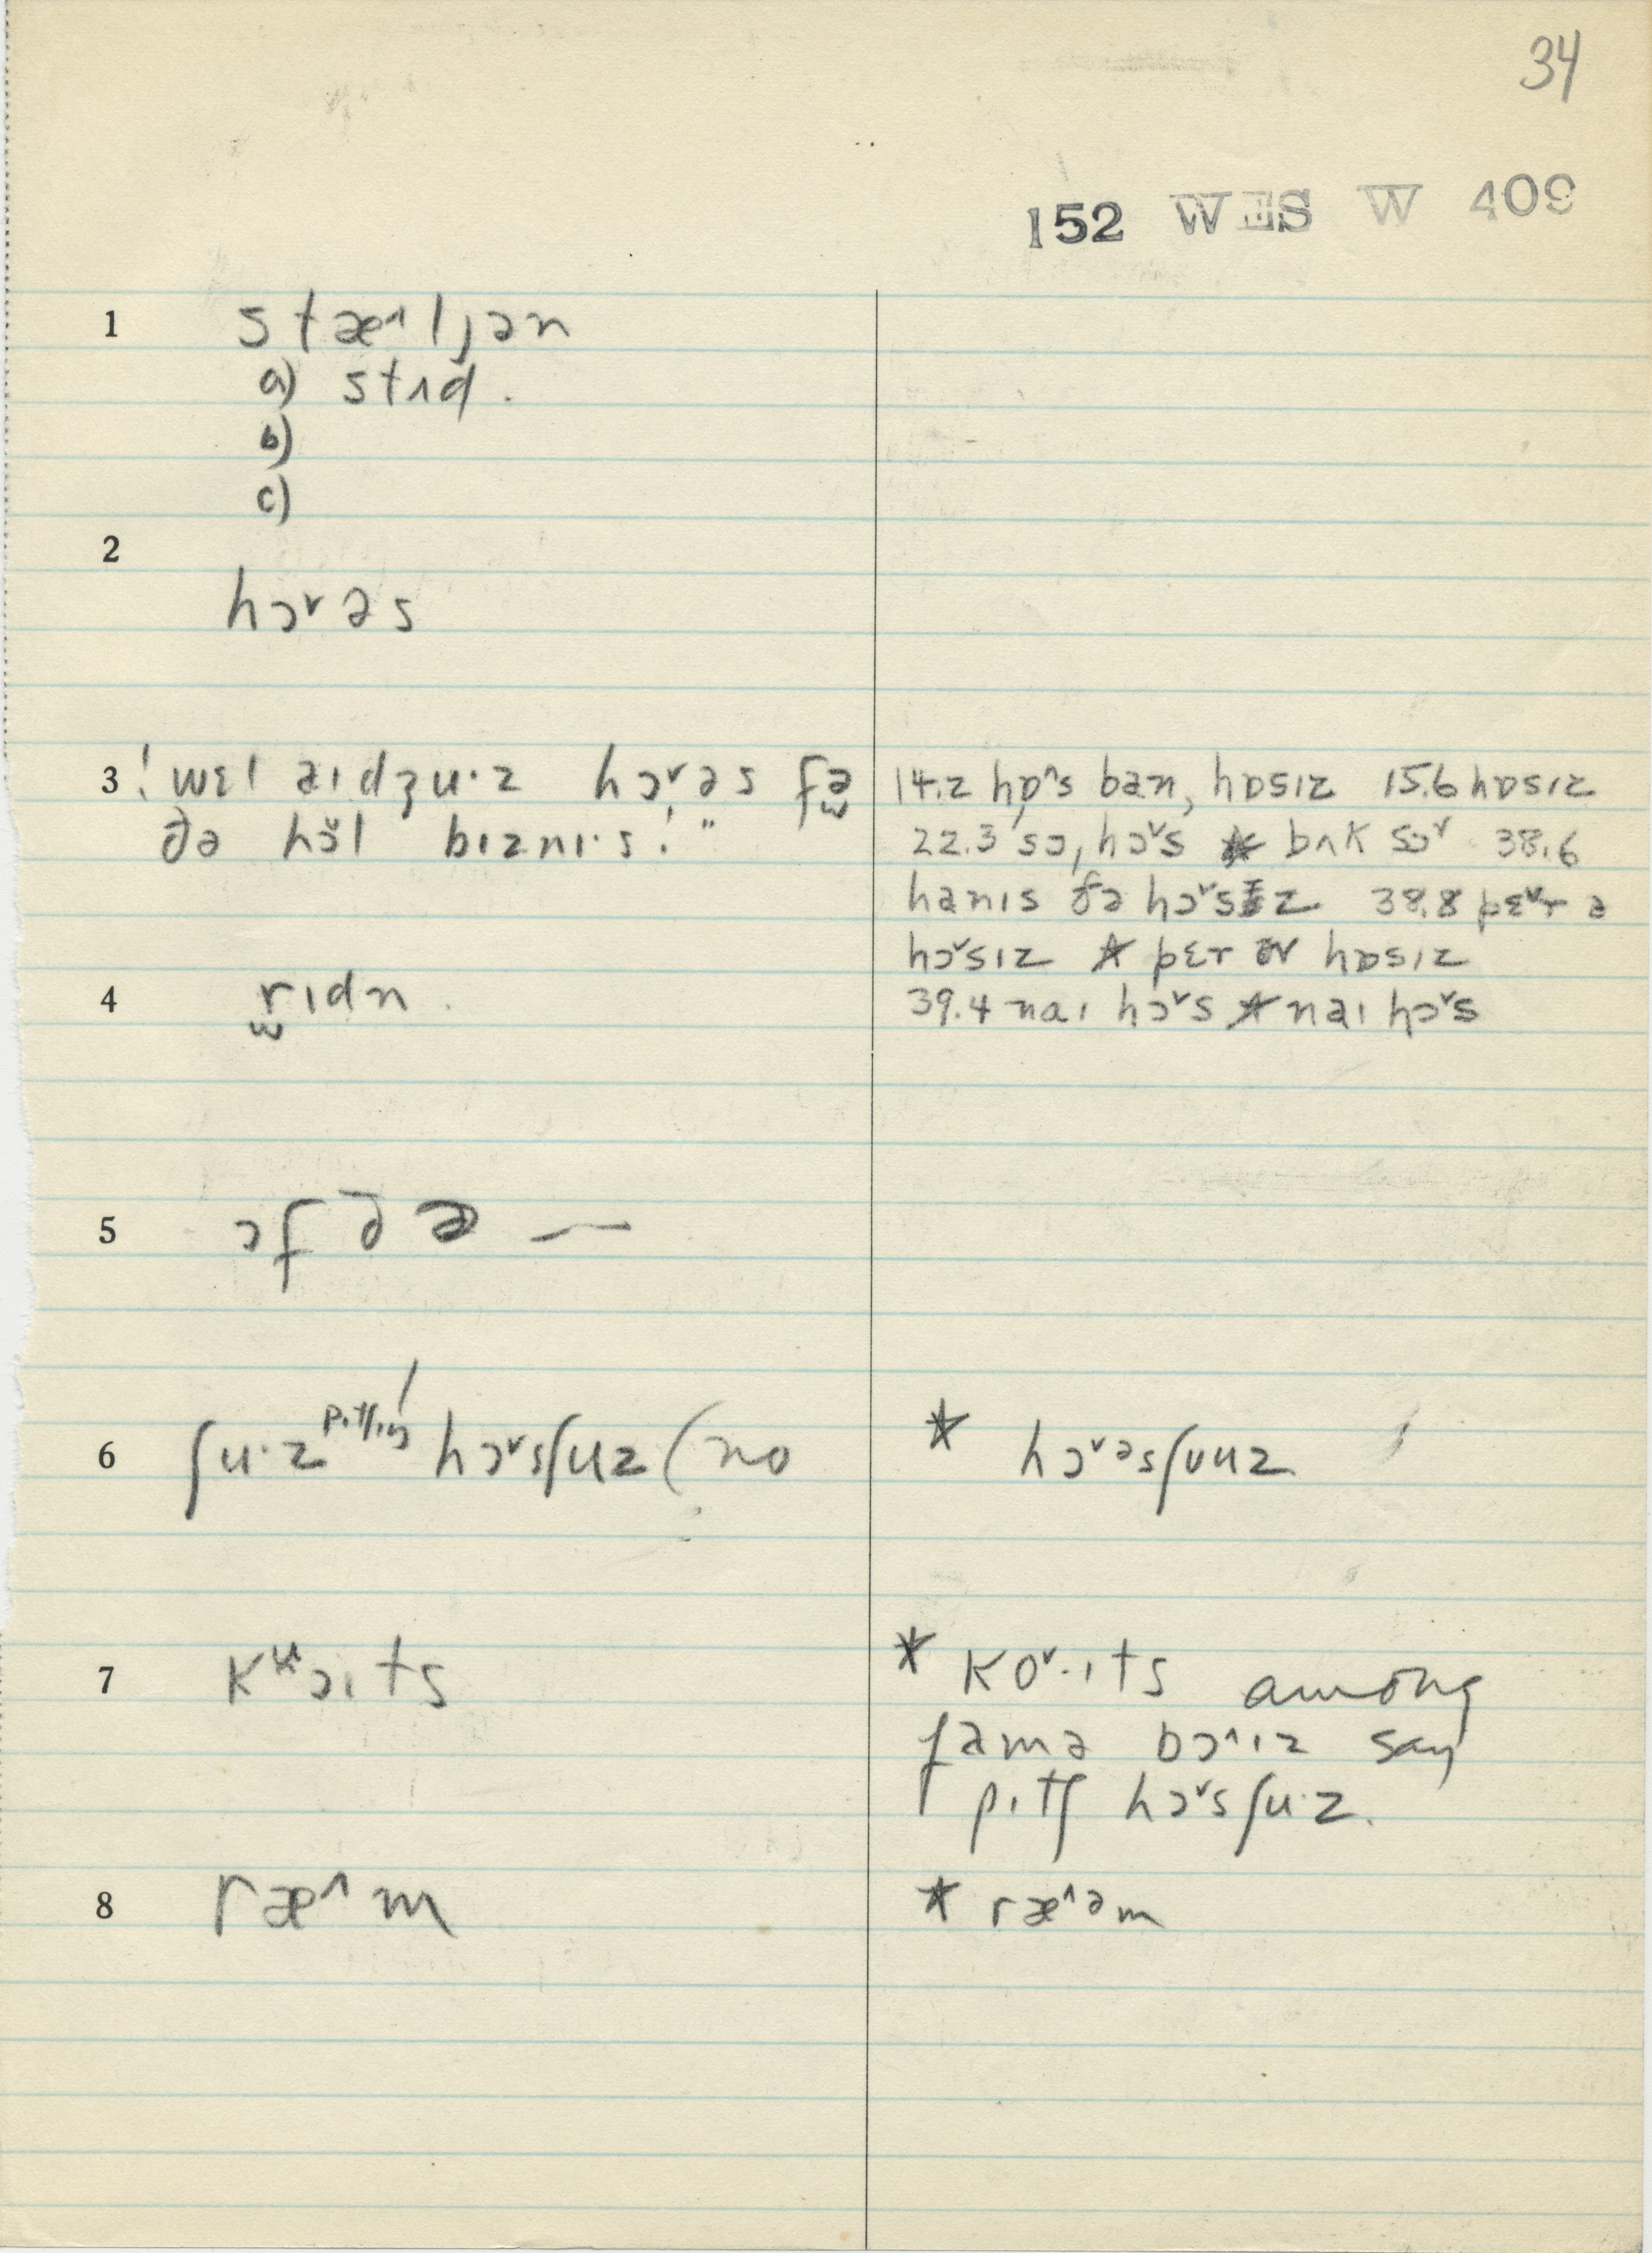 34
152 WES W 409
1 stæ^ljən
a) stʌd.
b)
c)
2
hɔ˅əs
3 ! wɛl aɪdʒu·z hɔ˅əs fə
ðə hɔ̆l bɪznɪ·s!"
14.2 hɒ^s ban, hɒsɪz 15.6 hɒsɪz
22.3 sɔ, hɔ˅s * bʌk sɔ˅ 38.6
hanɪs ðə hɔ˅sɪz 38.8 pɛ˅r ə
hɔ˅sɪz * pɛr əv hɒsɪz
4 rɪdn.
39.4 naɪ hɔ˅s * naɪ hɔ˅s
5 ɔf ðə —
6 ʃu·z pɪtʃɪŋ / hɔ˅sʃuz (no
* hɔ˅əsʃʊuz
7 kʷɔɪts
* ko˅·ɪts among
famə bɔ^ɪz say
pɪtʃ hɔ˅sʃu·z.
8 ræ^m
* ræ^əm